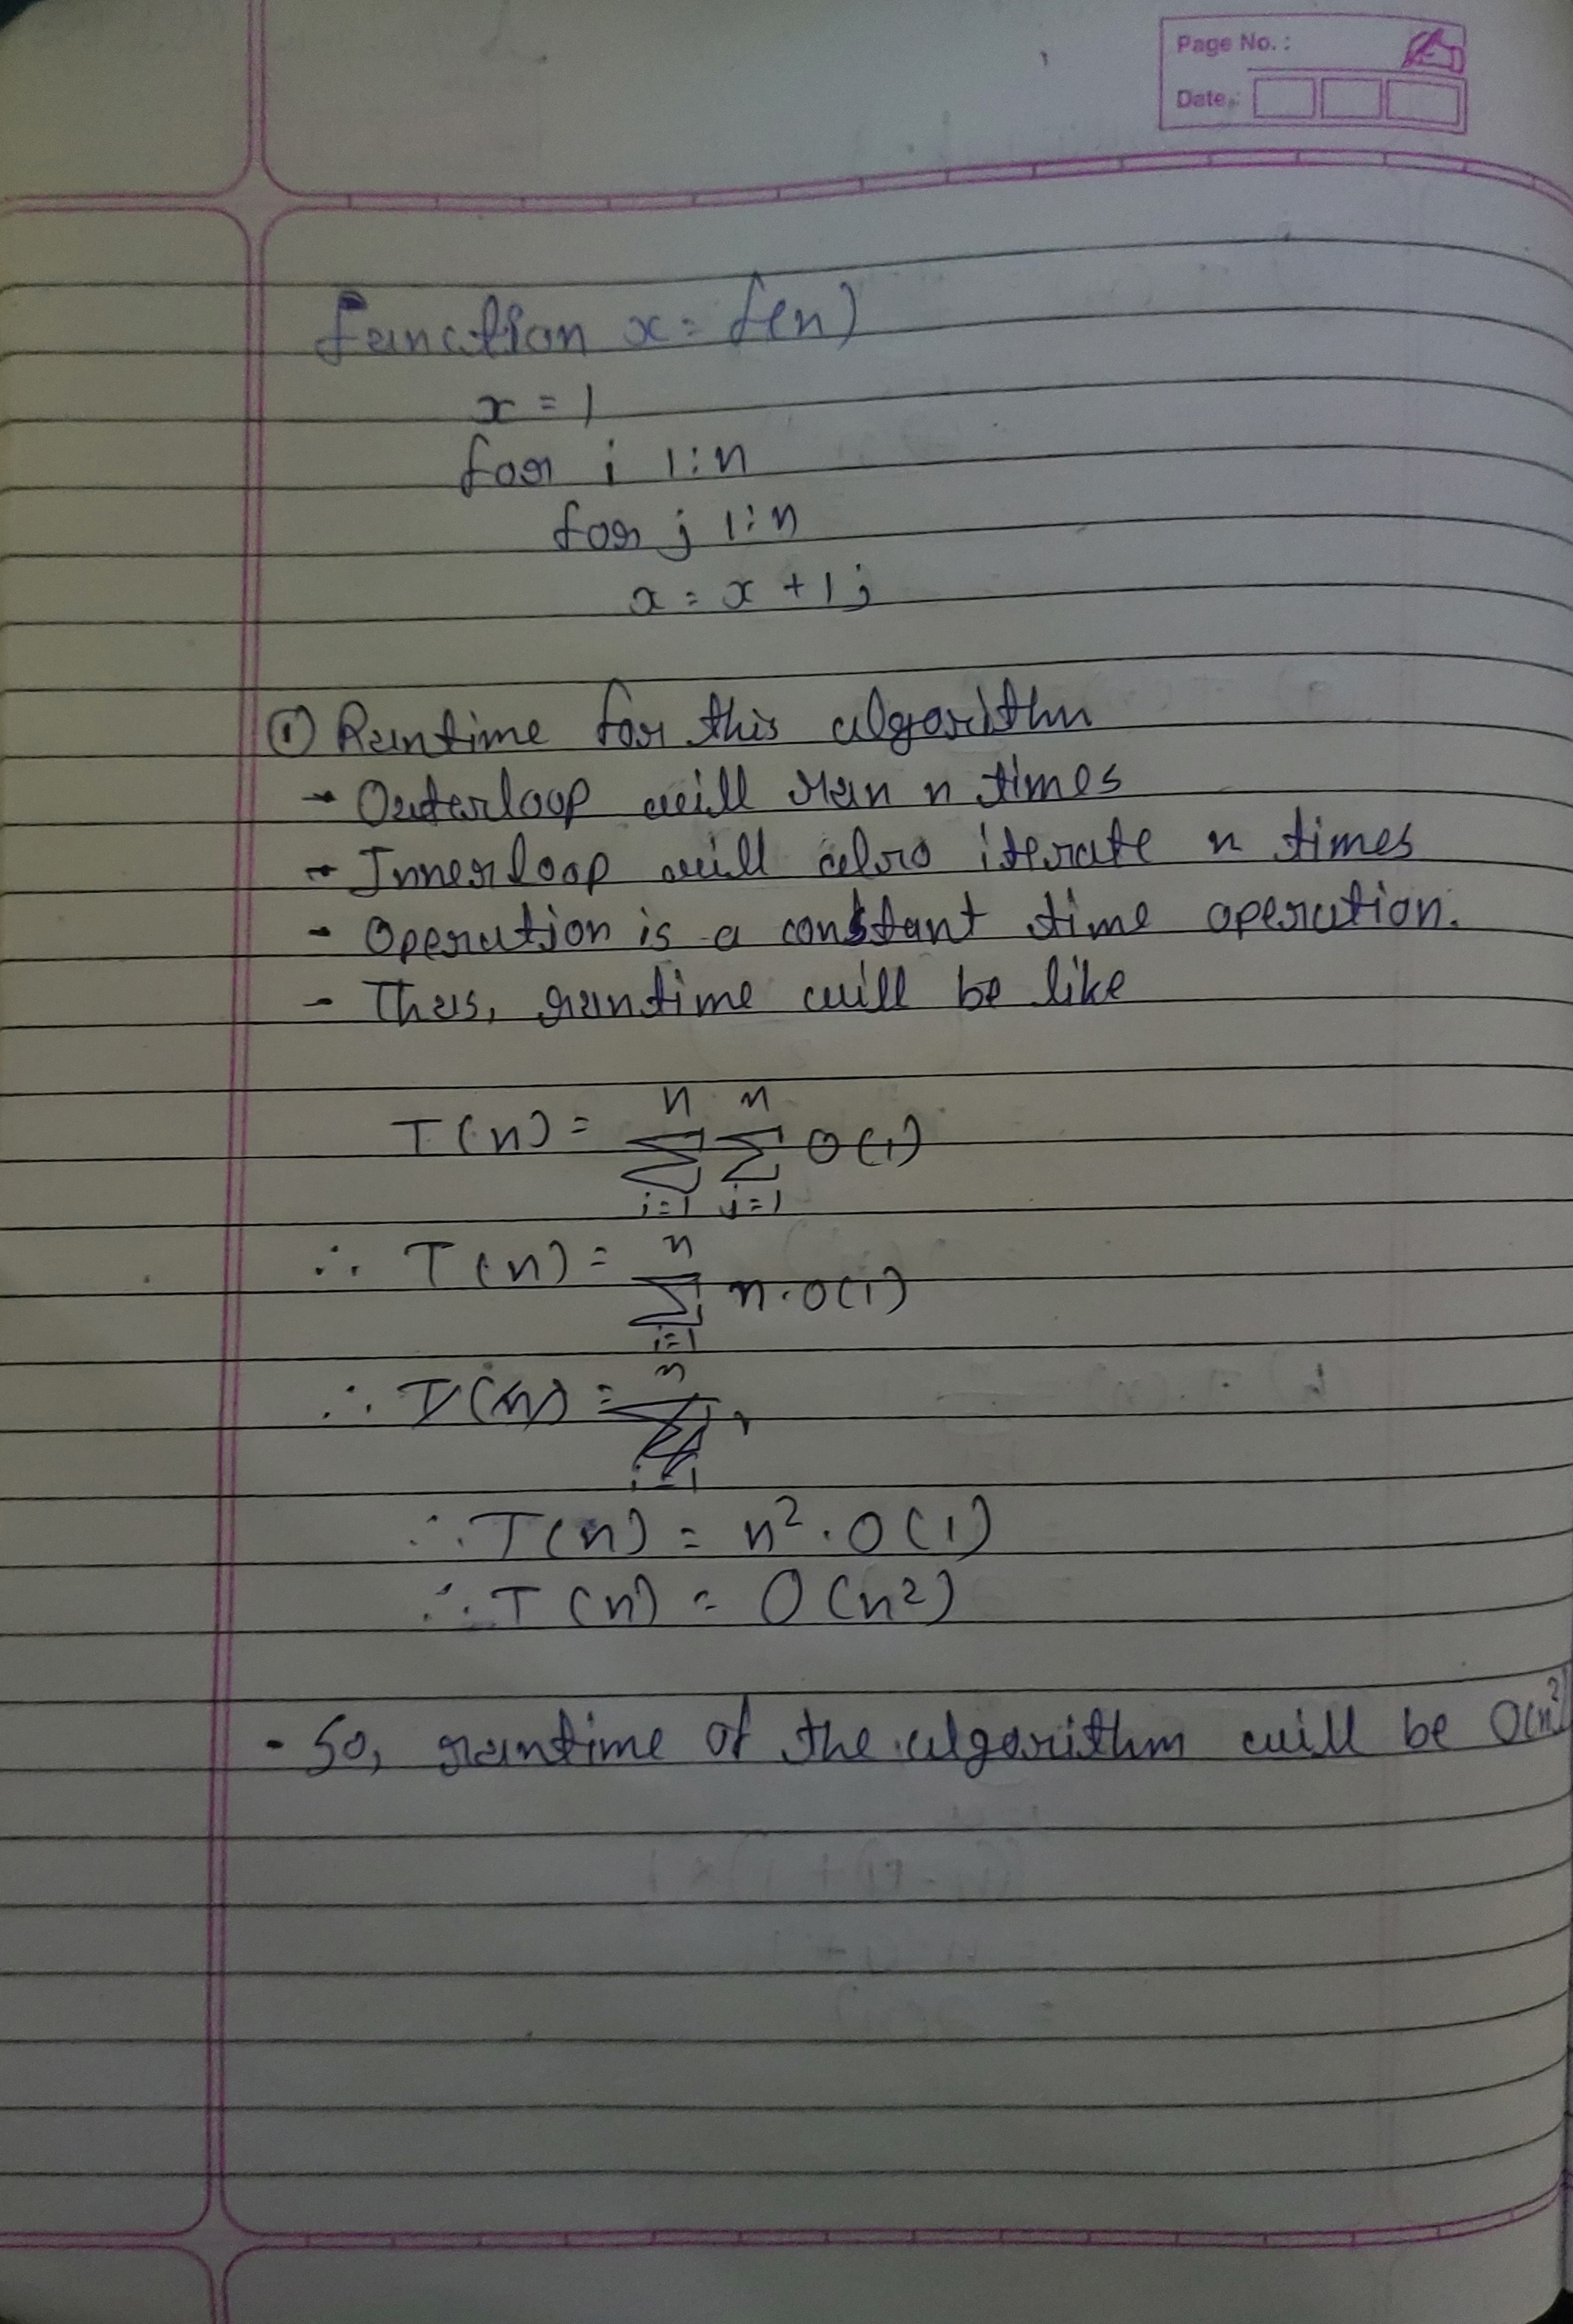 Page No. :
Date :
function x = f(n)
x = 1
for i 1:n
for j 1:n
x = x + 1;
① Runtime for this algorithm
→ Outerloop will run n times
→ Innerloop will also iterate n times
- Operation is a constant time operation.
- Thus, runtime will be like
T(n) = n∑i=1 n∑j=1 O(1)
∴ T(n) = n∑i=1 n·O(1)
∴ T(n) = n∑i=1
∴ T(n) = n²·O(1)
∴ T(n) = O(n²)
- So, runtime of the algorithm will be O(n²)